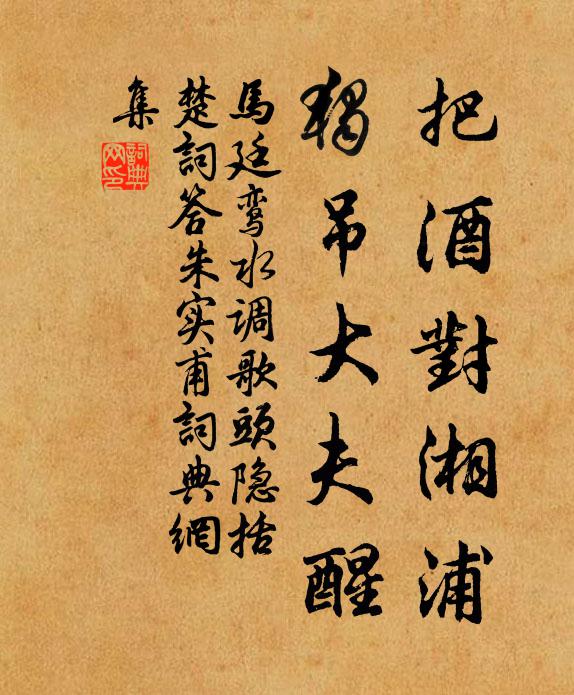 把酒對湘浦
獨吊大夫醒
馬廷鸾水调歌頭隐括
楚詞答朱实甫詞典網
集
詞典
网印